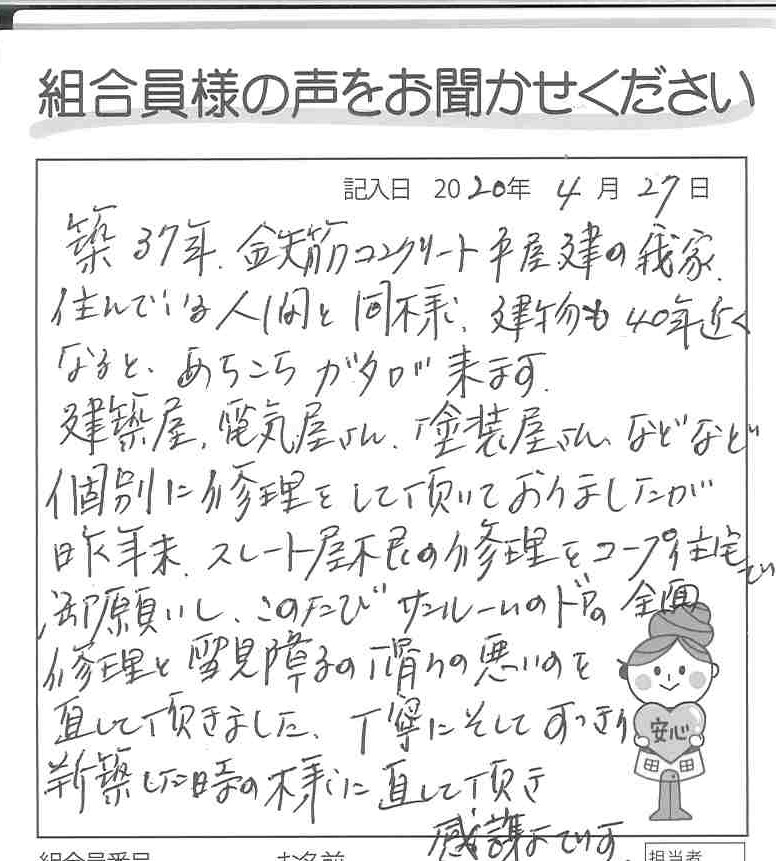 組合員様の声をお聞かせください
記入日 2020年 4月27日
築37年.鉄筋コンクリート平屋建の我家.
住んでいる人間と同様、建物も40年近く
なると、あちこちガタが来ます.
建築屋、電気屋さん、塗装屋さん、などなど
個別に修理をして頂いておりましたが
昨年末、スレート屋根の修理をコープ住宅で
御願いし、このたびサンルームのドアの全面
修理と雪見障子の滑りの悪いのを
直して頂きました、丁寧にそしてすっきり
新築した時の様に直して頂き
感謝です.
安心
組合員番号 お名前 担当者